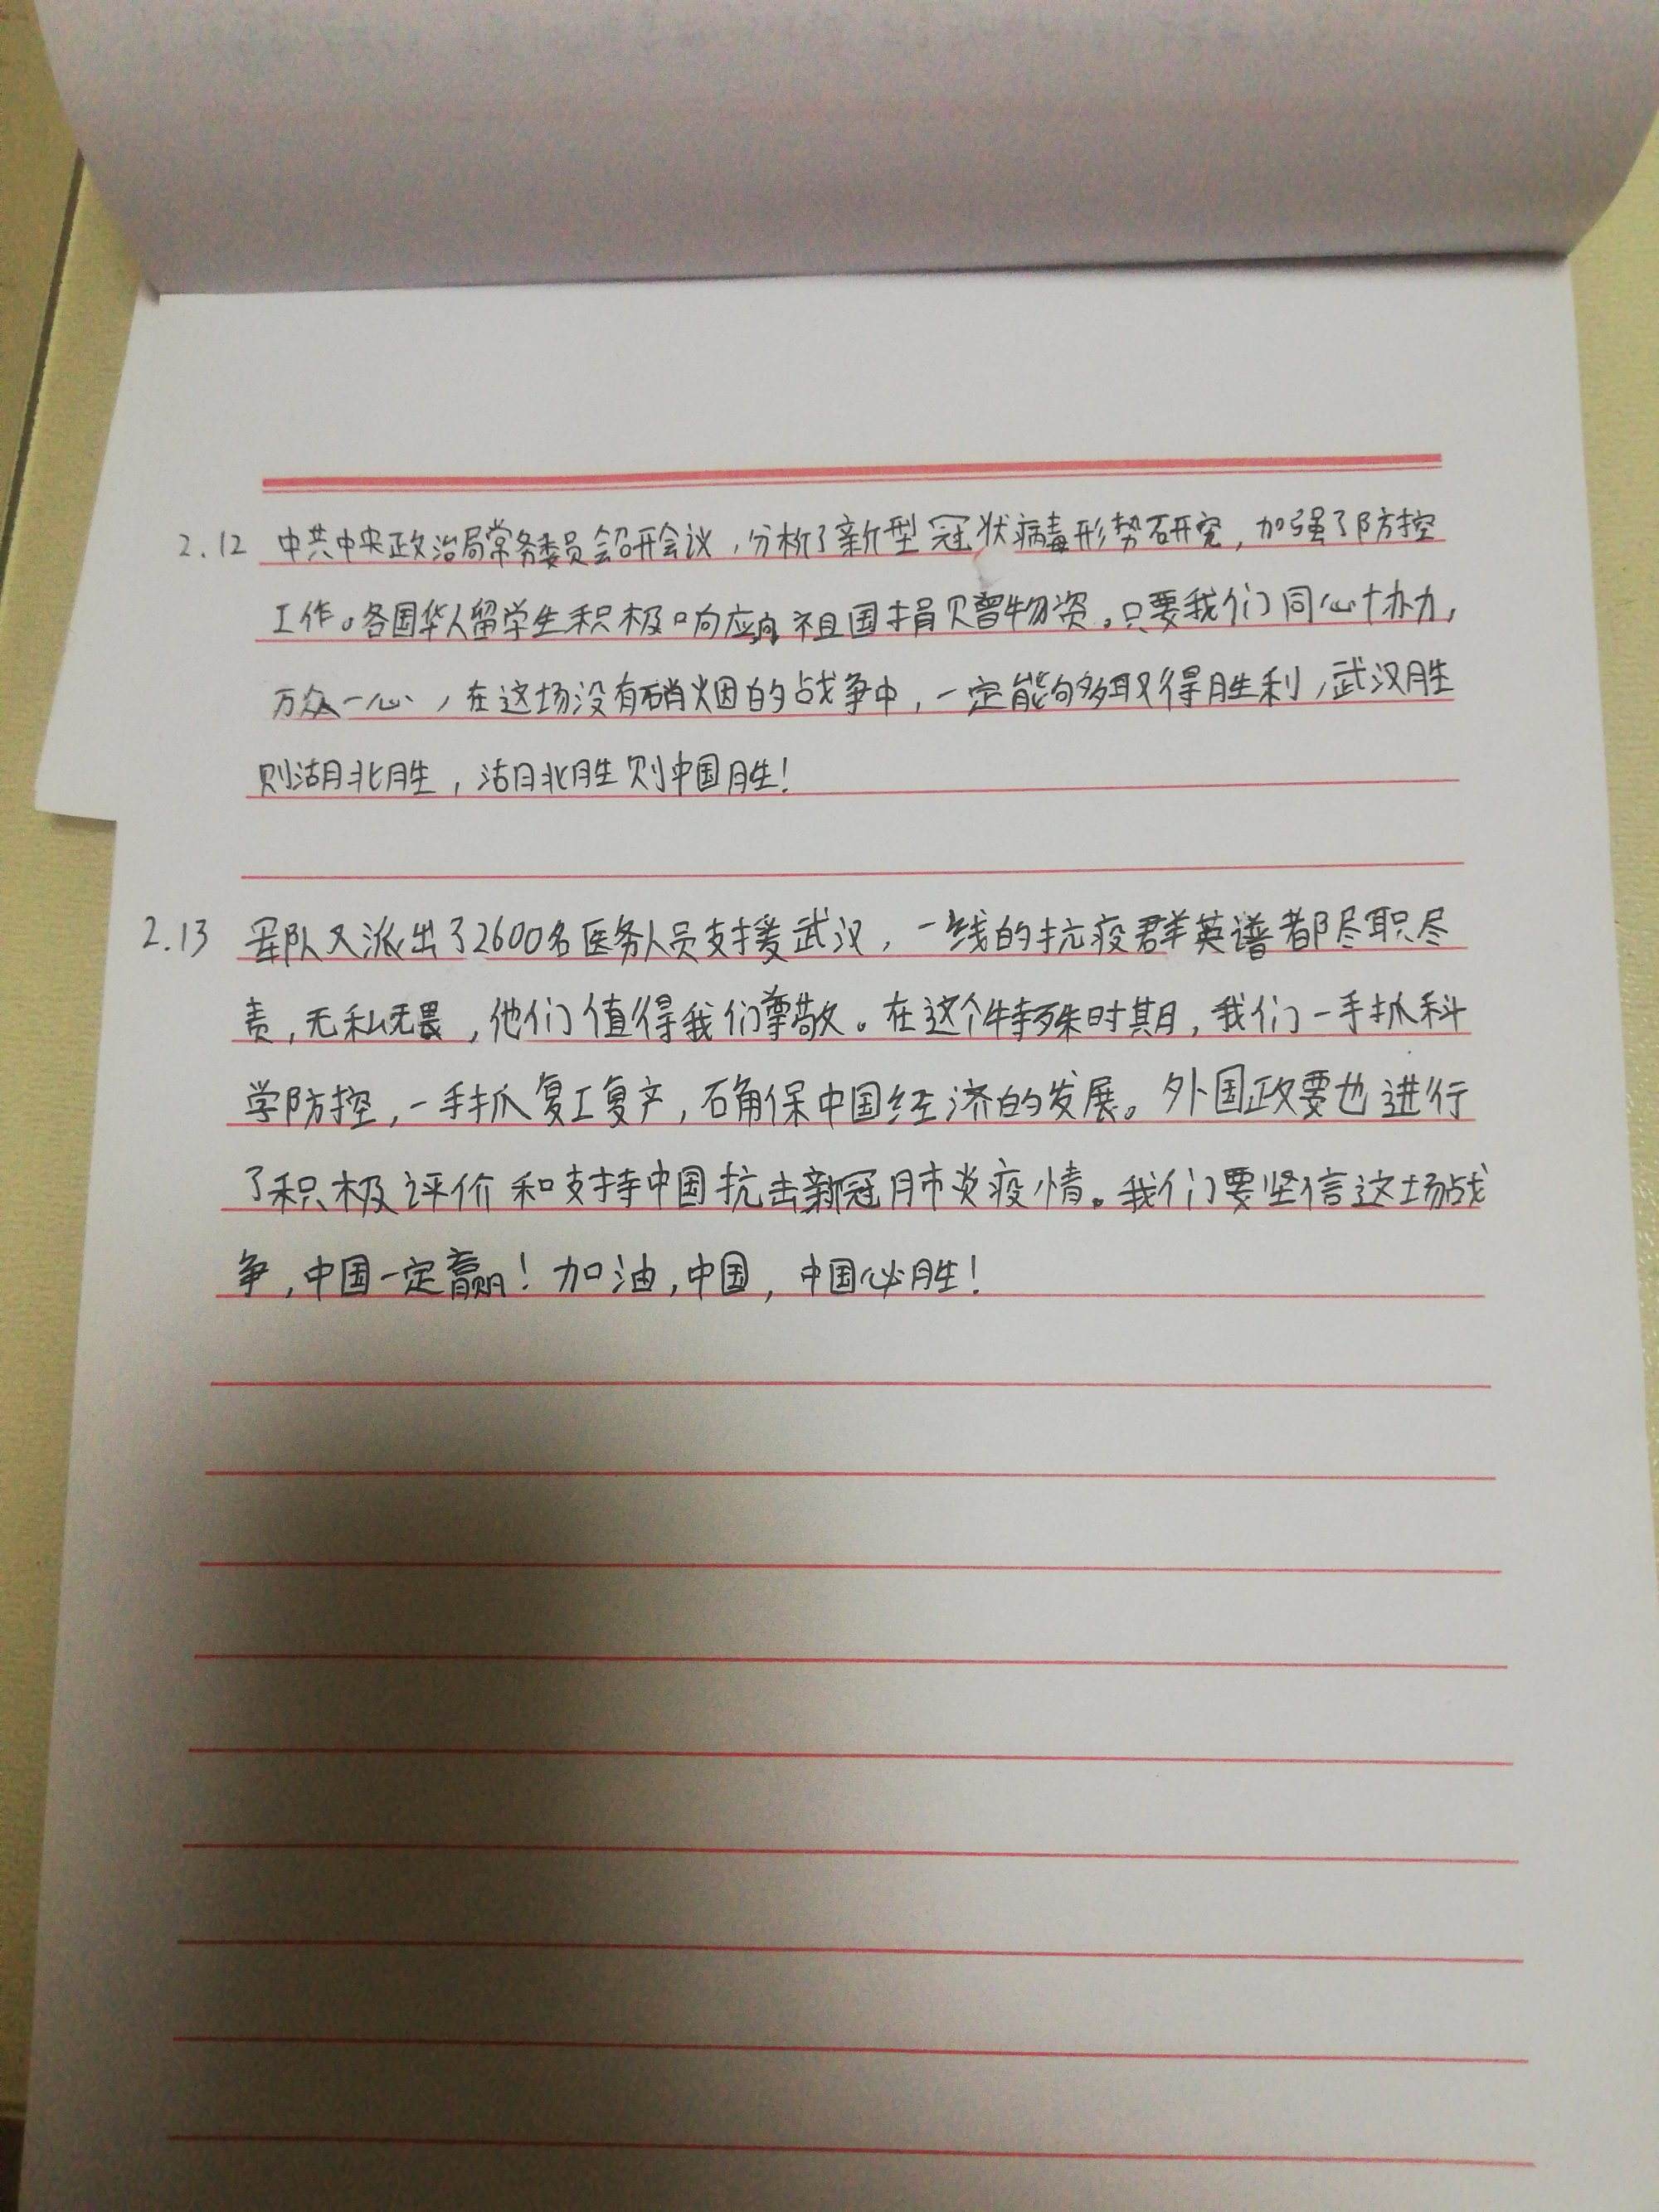 2.12 中共中央政治局常务委员会召开会议，分析了新型冠状病毒形势研究，加强了防控
工作。各国华人留学生积极响应向祖国捐赠物资。只要我们同心协力，
万众一心，在这场没有硝烟的战争中，一定能够取得胜利，武汉胜
则湖北胜，湖北胜则中国胜！
2.13 军队又派出了2600名医务人员支援武汉，一线的抗疫群英谱都尽职尽
责，无私无畏，他们值得我们尊敬。在这个特殊时期，我们一手抓科
学防控，一手抓复工复产，确保中国经济的发展。外国政要也进行
了积极评价和支持中国抗击新冠肺炎疫情。我们要坚信这场战
争，中国一定赢！加油，中国，中国必胜！